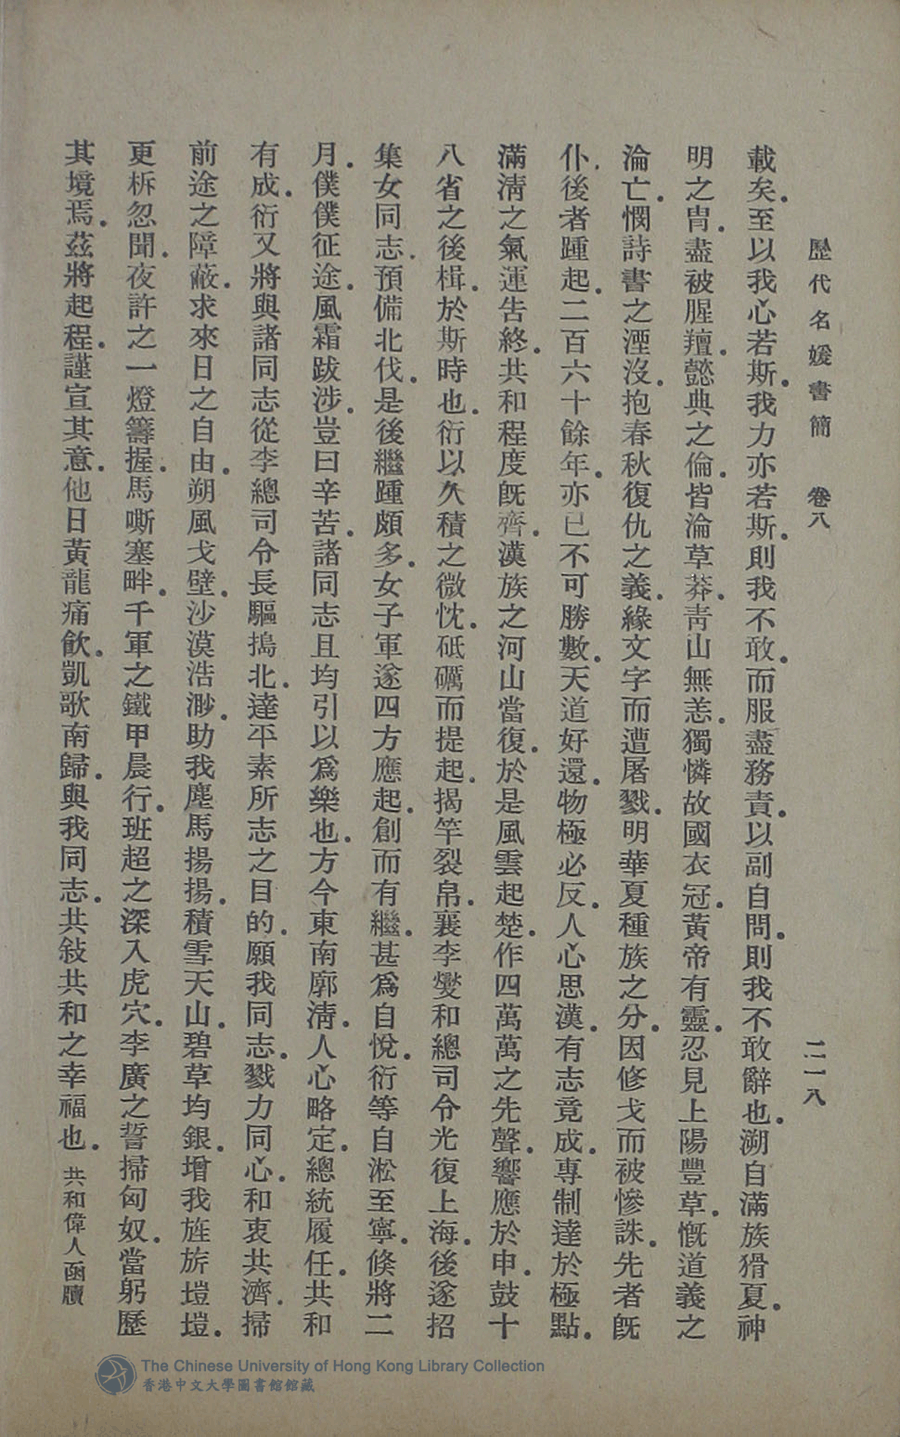 歷代名媛書簡　卷八　二一八
載矣。至以我心若斯。我力亦若斯。則我不敢。而服盡務責。以副自問。則我不敢辭也。溯自滿族猾夏。神
明之胄。盡被腥羶。懿典之倫。皆淪草莽。靑山無恙。獨憐故國衣冠。黃帝有靈。忍見上陽豐草。慨道義之
淪亡。憫詩書之湮沒。抱春秋復仇之義。緣文字而遭屠戮。明華夏種族之分。因修戈而被慘誅。先者旣
仆。後者踵起。二百六十餘年。亦已不可勝數。天道好還。物極必反。人心思漢。有志竟成。專制達於極點。
滿淸之氣運告終。共和程度旣齊。漢族之河山當復。於是風雲起楚。作四萬萬之先聲。響應於申。鼓十
八省之後楫。於斯時也。衍以久積之微忱。砥礪而提起。揭竿裂帛。襄李燮和總司令光復上海。後遂招
集女同志。預備北伐。是後繼踵頗多。女子軍遂四方應起。創而有繼。甚爲自悅。衍等自淞至寧。倏將二
月。僕僕征途。風霜跋涉。豈曰辛苦。諸同志且均引以爲樂也。方今東南廓淸。人心略定。總統履任。共和
有成。衍又將與諸同志從李總司令長驅搗北。達平素所志之目的。願我同志。戮力同心。和衷共濟。掃
前途之障蔽。求來日之自由。朔風戈壁。沙漠浩渺。助我塵馬揚揚。積雪天山。碧草均銀。增我旌旂塏塏。
更柝忽聞。夜許之一燈籌握。馬嘶塞畔。千軍之鐵甲晨行。班超之深入虎穴。李廣之誓掃匈奴。當躬歷
其境焉。茲將起程。謹宣其意。他日黃龍痛飮。凱歌南歸。與我同志。共敍共和之幸福也。共和偉人函牘
The Chinese University of Hong Kong Library Collection
香港中文大學圖書館館藏